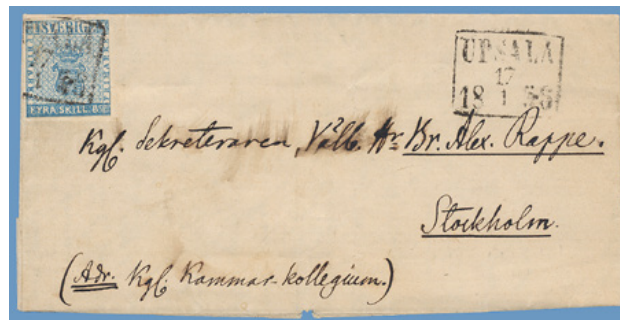 SVERIGE
FYRA SKILL. Bco
UPSALA
17
18 1 56
Kgl. Sekreteraren, Välb. Hr Br. Alex. Rappe.
Stockholm.
(Adr. Kgl. Kammar-kollegium.)